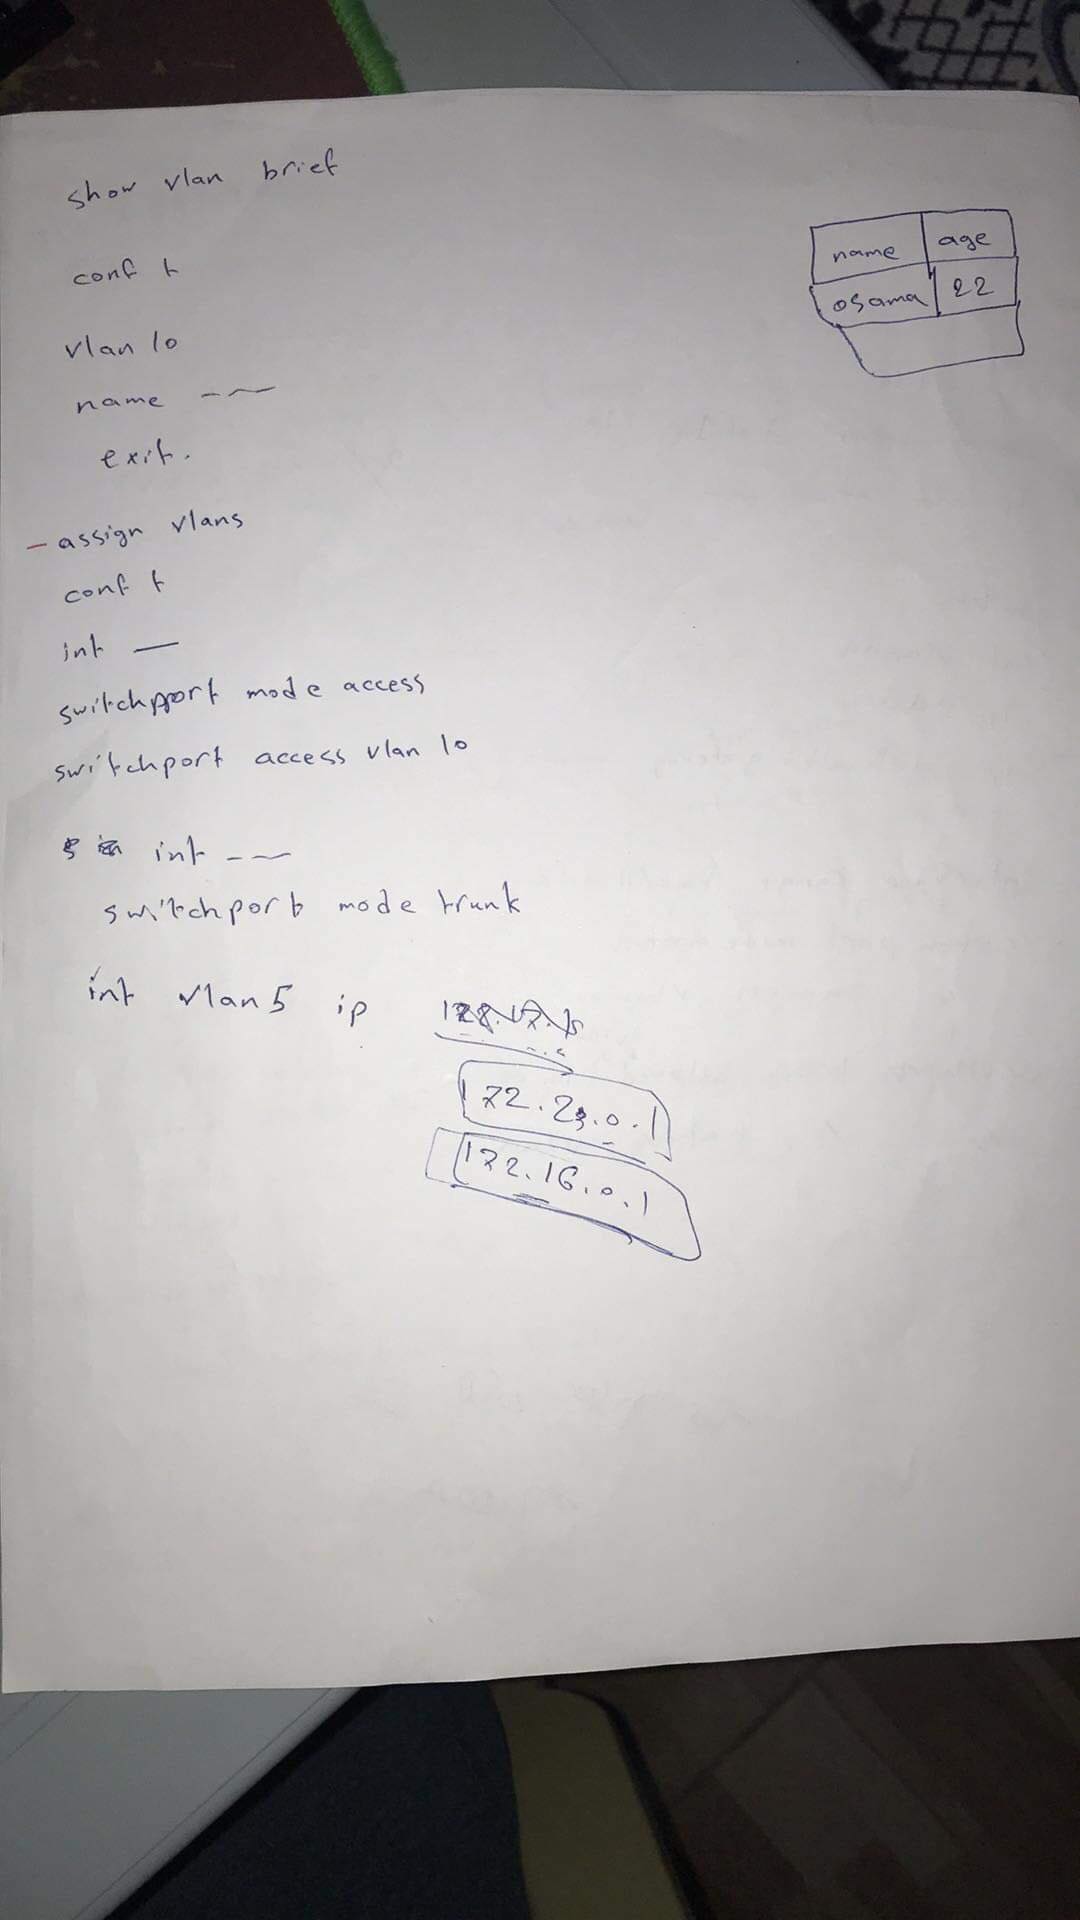 show vlan brief
name age
osama 22
conf t
vlan 10
name
exit.
- assign vlans
conf t
int —
switchport mode access
switchport access vlan 10
int
switchport mode trunk
int vlan 5 ip
172.23.0.1
172.16.0.1